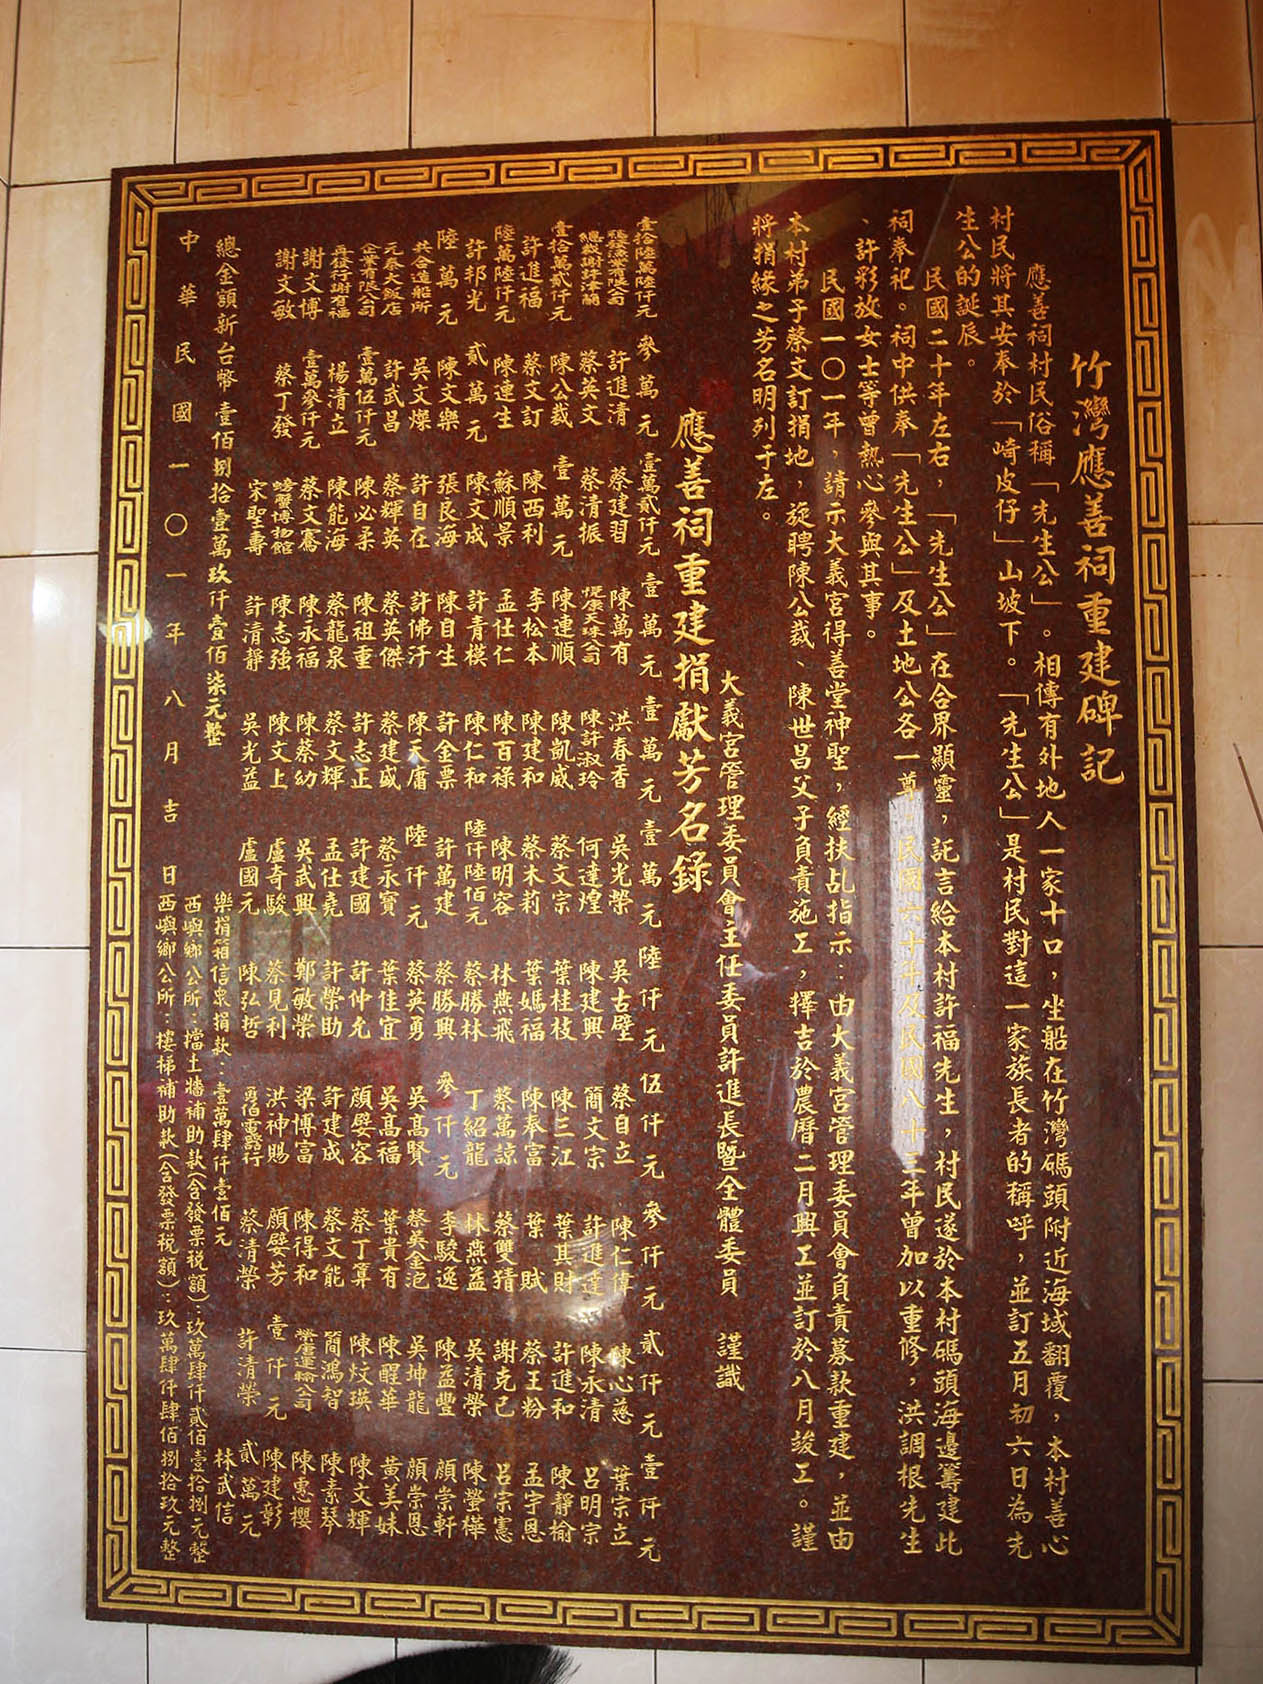 竹灣應善祠重建碑記
應善祠村民俗稱「先生公」。相傳有外地人一家十口，坐船在竹灣碼頭附近海域翻覆，本村善心
村民將其安奉於「崎皮仔」山坡下。「先生公」是村民對這一家族長者的稱呼，並訂五月初六日為先
生公的誕辰。
民國二十年左右，「先生公」在合界顯靈，託言給本村許福先生，村民遂於本村碼頭海邊籌建此
祠奉祀。祠中供奉「先生公」及土地公各一尊，民國六十年及民國八十三年曾加以重修，洪調根先生
、許彩放女士等曾熱心參與其事。
民國一〇一年，請示大義宮得善堂神聖，經扶乩指示：由大義宮管理委員會負責募款重建，並由
本村弟子蔡文訂捐地，旋聘陳公裁、陳世昌父子負責施工，擇吉於農曆二月興工並訂於八月竣工。謹
將捐緣之芳名明列于左。
大義宮管理委員會主任委員許進長暨全體委員 謹識
應善祠重建捐獻芳名錄
壹拾陸萬陸仟元 參萬元 壹萬貳仟元 壹萬元 壹萬元 壹萬元 陸仟元 伍仟元 參仟元 貳仟元 壹仟元
業有限公司 許進清 蔡建習 陳萬有 洪春香 吳光榮 吳古壁 蔡自立 陳仁偉 陳心慈 葉宗立
總裁謝許津蘭 蔡英文 蔡清振 天珠公司 陳許淑玲 何達煌 陳建興 簡文宗 許進達 陳永清 呂明宗
壹拾萬貳仟元 陳公裁 壹萬元 陳連順 陳凱威 蔡文宗 葉桂枝 陳三江 葉其財 許進和 陳靜榆
許進福 蔡文訂 陳西利 李松本 陳建和 蔡木莉 葉媽福 陳奉富 葉賦 蔡王粉 孟宇恩
陸萬陸仟元 陳連生 蘇順景 孟仕仁 陳百祿 陳明容 林燕飛 蔡萬諒 蔡雙猜 謝克己 呂宗憲
許邦光 貳萬元 陳文成 許青模 陳仁和 陸仟陸佰元 蔡勝林 丁紹龍 林燕益 吳清榮 陳螢樺
陸萬元 陳文樂 張良海 陳自生 許金票 許萬建 蔡勝興 參仟元 李駿逸 陳益豐 顏崇軒
共合造船所 吳文燦 許自在 許佛汙 陳天庸 陸仟元 蔡英勇 吳高賢 蔡吳金泡 吳坤龍 顏崇恩
元泰大飯店 許武昌 蔡輝英 蔡英傑 蔡建盛 蔡永寶 葉佳宜 吳高福 葉貴有 陳醒華 黃美妹
企業有限公司 壹萬伍仟元 陳必柔 陳祖重 許志正 許建國 許仲允 顏嬖容 蔡丁算 陳炆瑛 陳文輝
再發行謝有福 楊清立 陳能海 蔡龍泉 蔡文輝 孟仕堯 許榮助 許建成 蔡文能 簡鴻智 陳素琴
謝文博 壹萬參仟元 蔡文騫 陳永福 陳蔡幼 吳武興 鄭敏榮 梁博富 陳得和 運輸公司 陳惠櫻
謝文敏 蔡丁發 螃蟹博物館 陳志強 陳文上 盧奇駿 蔡見利 洪神賜 顏嬖芳 壹仟元 陳建彰
宋聖壽 許清靜 吳光益 盧國元 陳弘哲 勇伯電器行 蔡清榮 許清榮 貳萬元
林武信
總金額新台幣壹佰捌拾壹萬玖仟壹佰柒元整
樂捐箱信眾捐款：壹萬肆仟壹佰元
西嶼鄉公所：擋土牆補助款(含發票稅額)：玖萬肆仟貳佰壹拾捌元整
西嶼鄉公所：樓梯補助款(含發票稅額)：玖萬肆仟肆佰捌拾玖元整
中華民國一〇一年八月吉日